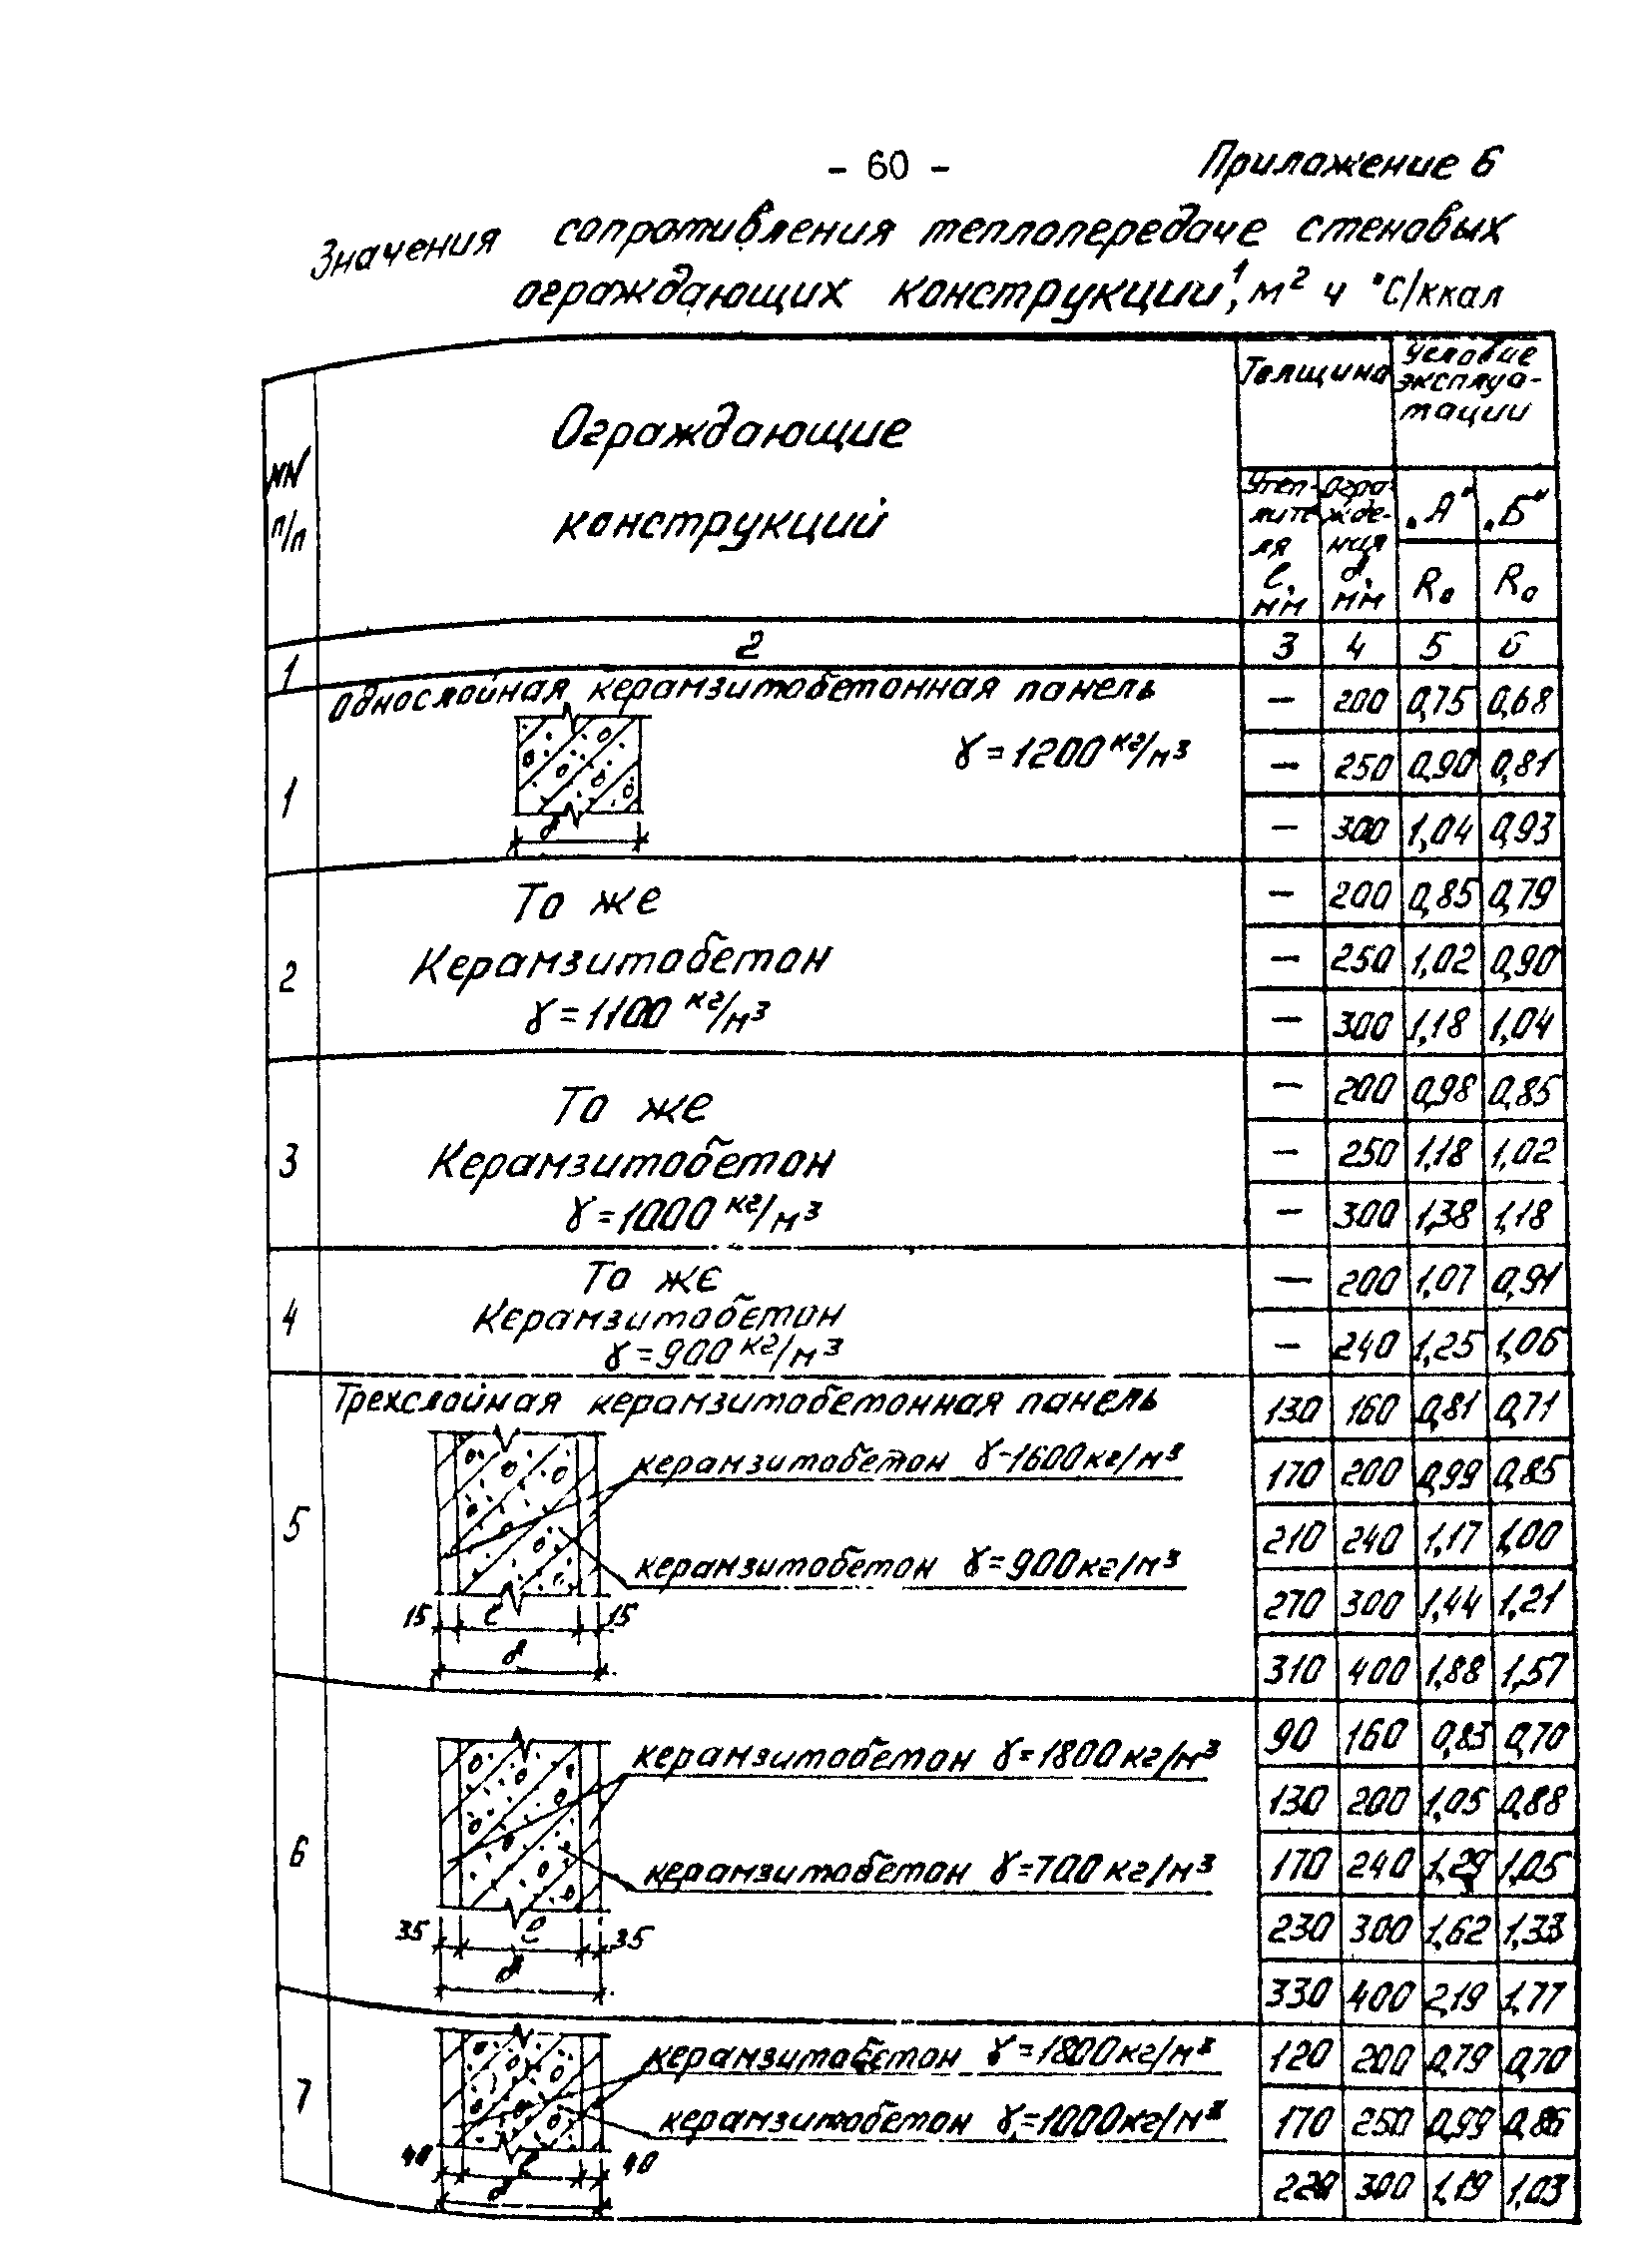 - 60 -
Приложение 6
Значения сопротивления теплопередаче стеновых
ограждающих конструкций¹, м² ч °С/ккал
NN
п/п
Ограждающие
конструкций
Толщина
Условие
эксплуа-
тации
Утеп-
лите
ля
ℓ,
мм
Огра-
жде-
ния
δ,
мм
„А"
„Б"
R₀
R₀
1 2 3 4 5 6
1
Однослойная керамзитобетонная панель
γ = 1200 кг/м³
δ
— 200 0,75 0,68
— 250 0,90 0,81
— 300 1,04 0,93
2
То же
Керамзитобетон
γ = 1100 кг/м³
— 200 0,85 0,79
— 250 1,02 0,90
— 300 1,18 1,04
3
То же
Керамзитобетон
γ = 1000 кг/м³
— 200 0,98 0,85
— 250 1,18 1,02
— 300 1,38 1,18
4
То же
Керамзитобетон
γ = 900 кг/м³
— 200 1,07 0,91
— 240 1,25 1,06
5
Трехслойная керамзитобетонная панель
керамзитобетон γ-1600 кг/м³
керамзитобетон γ = 900 кг/м³
15 ℓ 15
δ
130 160 0,81 0,71
170 200 0,99 0,85
210 240 1,17 1,00
270 300 1,44 1,21
310 400 1,88 1,57
6
керамзитобетон γ = 1800 кг/м³
керамзитобетон γ = 700 кг/м³
35 ℓ 35
δ
90 160 0,83 0,70
130 200 1,05 0,88
170 240 1,29 1,05
230 300 1,62 1,33
330 400 2,19 1,77
7
керамзитобетон γ = 1800 кг/м³
керамзитобетон γ = 1000 кг/м³
40 ℓ 40
δ
120 200 0,79 0,70
170 250 0,99 0,86
220 300 1,19 1,03